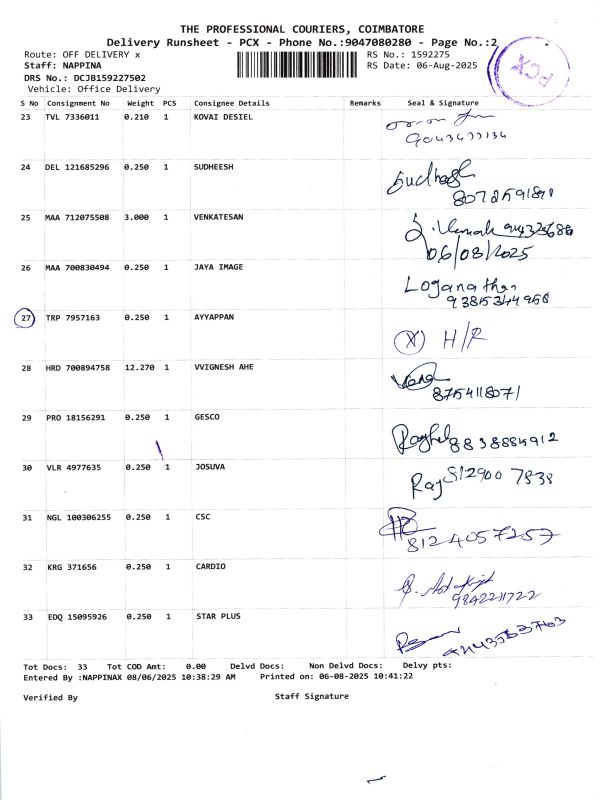 THE PROFESSIONAL COURIERS, COIMBATORE
Delivery Runsheet - PCX - Phone No.:9047080280 - Page No.:2
Route: OFF DELIVERY x RS No.: 1592275
Staff: NAPPINA RS Date: 06-Aug-2025
DRS No.: DCJB159227502
Vehicle: Office Delivery
PCX
S No Consignment No Weight PCS Consignee Details Remarks Seal & Signature
23 TVL 7336011 0.210 1 KOVAI DESIEL
24 DEL 121685296 0.250 1 SUDHEESH Sudheesh
25 MAA 712075508 3.000 1 VENKATESAN
06/08/2025
26 MAA 700830494 0.250 1 JAYA IMAGE Loganathan
9385344956
27 TRP 7957163 0.250 1 AYYAPPAN X H/R
28 HRD 700894758 12.270 1 VVIGNESH AHE
8754118071
29 PRO 18156291 0.250 1 GESCO
8838884912
30 VLR 4977635 0.250 1 JOSUVA Raj
31 NGL 100306255 0.250 1 CSC
8124057257
32 KRG 371656 0.250 1 CARDIO
9842211722
33 EDQ 15095926 0.250 1 STAR PLUS
Tot Docs: 33 Tot COD Amt: 0.00 Delvd Docs: Non Delvd Docs: Delvy pts:
Entered By :NAPPINAX 08/06/2025 10:38:29 AM Printed on: 06-08-2025 10:41:22
Verified By Staff Signature